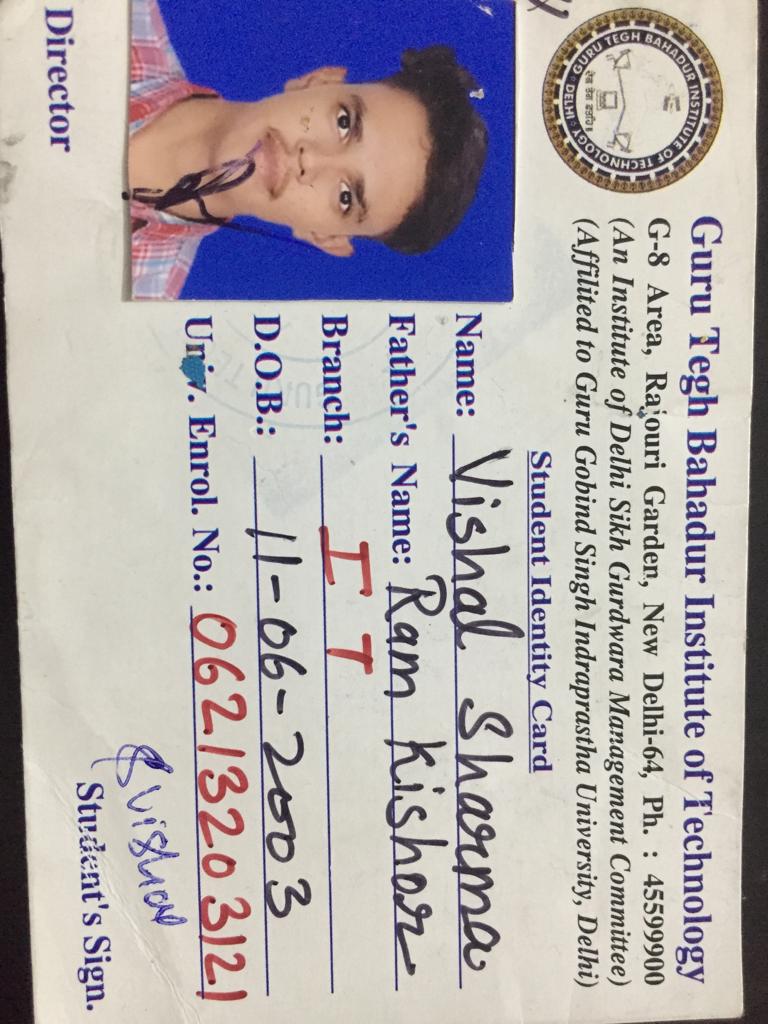 Guru Tegh Bahadur Institute of Technology
G-8 Area, Rajouri Garden, New Delhi-64, Ph. : 45599900
(An Institute of Delhi Sikh Gurdwara Management Committee)
(Affilited to Guru Gobind Singh Indraprastha University, Delhi)
GURU TEGH BAHADUR INSTITUTE OF TECHNOLOGY · DELHI
Student Identity Card
Name: Vishal Sharma
Father's Name: Ram Kishor
Branch: IT
D.O.B.: 11-06-2003
Univ. Enrol. No.: 06213203121
Director
Vishal
Student's Sign.